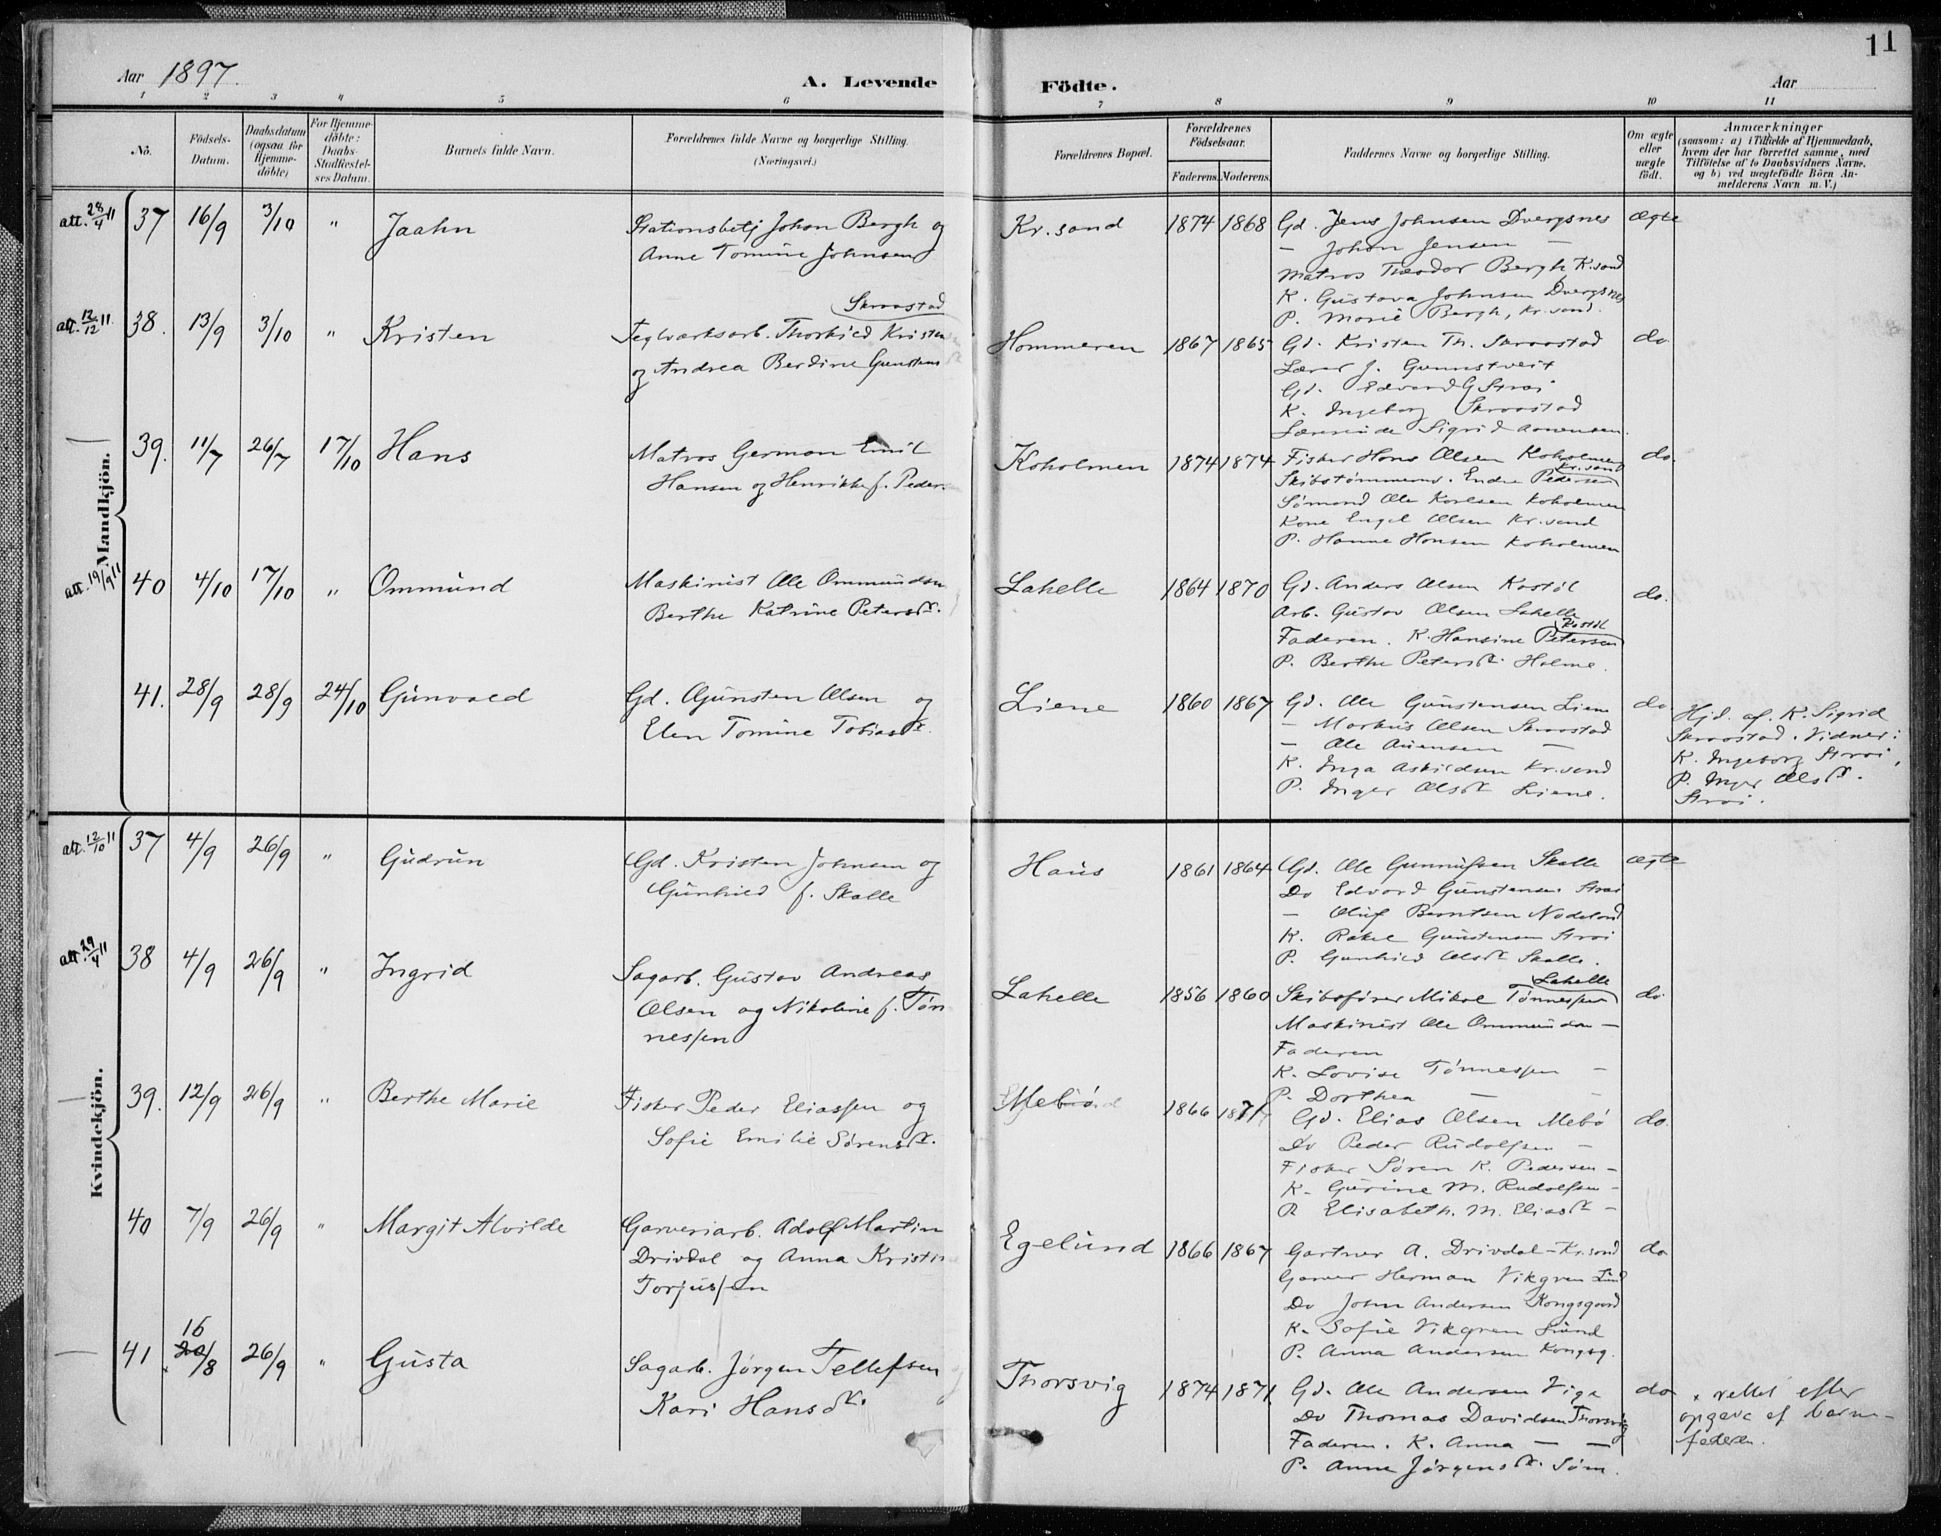 Aar 1897
A. Levende Födte.
Aar
11
1 2 3 4 5 6 7 8 9 10 11
No.
Födsels-Datum.
Daabsdatum (ogsaa for Hjemme-döbte)
For Hjemme-döbte: Daabs-Stadfæstel-ses Datum.
Barnets fulde Navn.
Forældrenes fulde Navne og borgerlige Stilling.
(Næringsvei.)
Forældrenes Bopæl.
Forældrenes Födselsaar.
Faderens. Moderens.
Faddernes Navne og borgerlige Stilling.
Om ægte eller uægte födt.
Anmærkninger
(saasom: a) i Tilfælde af Hjemmedaab,
hvem der har forrettet samme, med
Tilföielse af to Daabsvidners Navne,
og b) ved uægtefödte Börn An-
melderens Navn m. V.)
Mandkjön.
att. 28/4 11 37 16/9 3/10 " Jaahn
Stationsbetj Johan Bergh og
Anne Tomine Johnsen
Kr.sand 1874 1868
Gd. Jens Johnsen Dvergsnes
— Johan Jensen —
Matros Theodor Bergh K.sand
K. Gustava Johnsen Dvergsnes
P. Marie Bergh, Kr.sand.
ægte
att. 12/12 11. 38. 13/9 3/10 " Kristen
Skraastad
Teglværksarb. Thorkild Kristen
og Andrea Berdine Gunstens
Hommeren 1867 1865
Gd. Kristen Th. Skraastad
Lærer J. Gunnstveit
Gd. Edvard G Strai
K. Ingeborg Skraastad
Lærerinde Sigrid Aanensen.
do.
— 39. 11/7 26/7 17/10 Hans
Matros German Emil
Hansen og Henrikke f. Peder
Koholmen 1874 1874
Fisker Hans Olsen Koholmen
Kr.sand
Skibstømmerm. Endre Pedersen
Sømand Ole Karlsen Koholmen
Kone Engel Olsen Kr.sand
P. Hanne Hansen Koholmen
do.
att. 19/9 11 40 4/10 17/10 " Ommund
Maskinist Ole Ommundsen
Berthe Katrine Petersdtr.
Lahelle 1864 1870
Gd. Anders Olsen Kostøl
Arb. Gustav Olsen Lahelle
Kostøl
Faderen. K. Hansine Petersen
P. Berthe Petersdtr. Holme.
do.
41. 28/9 28/9 24/10 Gunvald
Gd. Gunsten Olsen og
Elen Tomine Tobiasdtr.
Liene 1860 1867
Gd. Ole Gunstensen Liene
— Markus Olsen Skraastad
— Ole Anensen —
K. Inga Askildsen Kr.sand
P. Inger Olsdtr Liene.
do
Hjd. af K. Sigrid
Skraastad. Vidner:
K. Ingeborg Strai,
P. Inger Olsdtr.
Strai.
Kvindekjön.
att. 12/10 11 37 4/9 26/9 " Gudrun
Gd. Kristen Johnsen og
Gunhild f. Skalle
Haus 1861 1864
Gd. Ole Gunnufsen Skalle
Do Edvard Gunstensen Strai
— Oluf Berntsen Nodeland
K. Rakel Gunstensen Strai
P. Gunhild Olsdtr Skalle.
ægte
att. 29/4 11 38 4/9 26/9 " Ingrid
Sagarb. Gustav Andreas
Olsen og Nikoline f. Tøn
nessen
Lahelle 1856 1860
Lahelle
Skibsfører Mikal Tønnessen
Maskinist Ole Ommundsen —
Faderen
K. Lovise Tønnessen —
P. Dorthea — —
do.
— 39. 12/9 26/9 " Berthe Marie
Fisker Peder Eliassen og
Sofie Emilie Sørensdtr.
Mebø 1866 1871
Gd. Elias Olsen Mebø
Do Peder Rudolfsen —
Fisker Søren K. Pedersen —
K. Gurine M. Rudolfsen —
P. Elisabeth. M. Eliasdtr —
do.
40 7/9 26/9 " Margit Alvilde
Garveriarb. Adolf Martin
Drivdal og Anna Kristin
Torjussen
Egelund 1866 1867
Gartner A. Drivdal — Kr.sand
Garver Herman Vikgren Lund
Do John Andersen Kongsgaard
K. Sofie Vikgren Lund
P. Anna Andersen Kongsg.
do
— 41 16 20/8 26/9 " Gusta
Sagarb. Jørgen Tellefsen
Kari Hansdtr.
Thorsvig 1874 1871.
Gd. Ole Andersen Vige
Do Thomas Davidsen Thorsvig
Faderen. K. Anna — —
P. Anne Jørgensdtr. Søm.
do
x rettet efter
opgave af barne-
faderen.